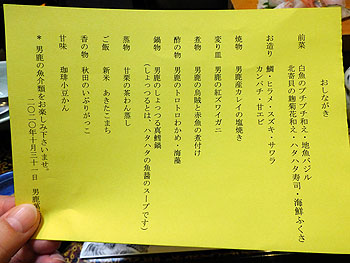 おしながき
前菜 白魚のプチプチ和え・地魚バジル
北寄貝の麹菊花和え・ハタハタ寿司・海鮮ふくさ
お造り 鯛・ヒラメ・スズキ・サワラ
カンパチ・甘エビ
焼物 男鹿産カレイの塩焼き
変り皿 男鹿の紅ズワイガニ
煮物 男鹿の烏賊と赤魚の煮付け
酢の物 男鹿のトロトロわかめ・海藻
鍋物 男鹿のしょっつる真鱈鍋
(しょっつるとは、ハタハタの魚醤のスープです)
蒸物 甘栗の茶わん蒸し
ご飯 新米 あきたこまち
香の物 秋田のいぶりがっこ
甘味 珈琲小豆かん
*男鹿の魚介類をお楽しみ下さいませ。
二〇二〇年十月三十一日 男鹿